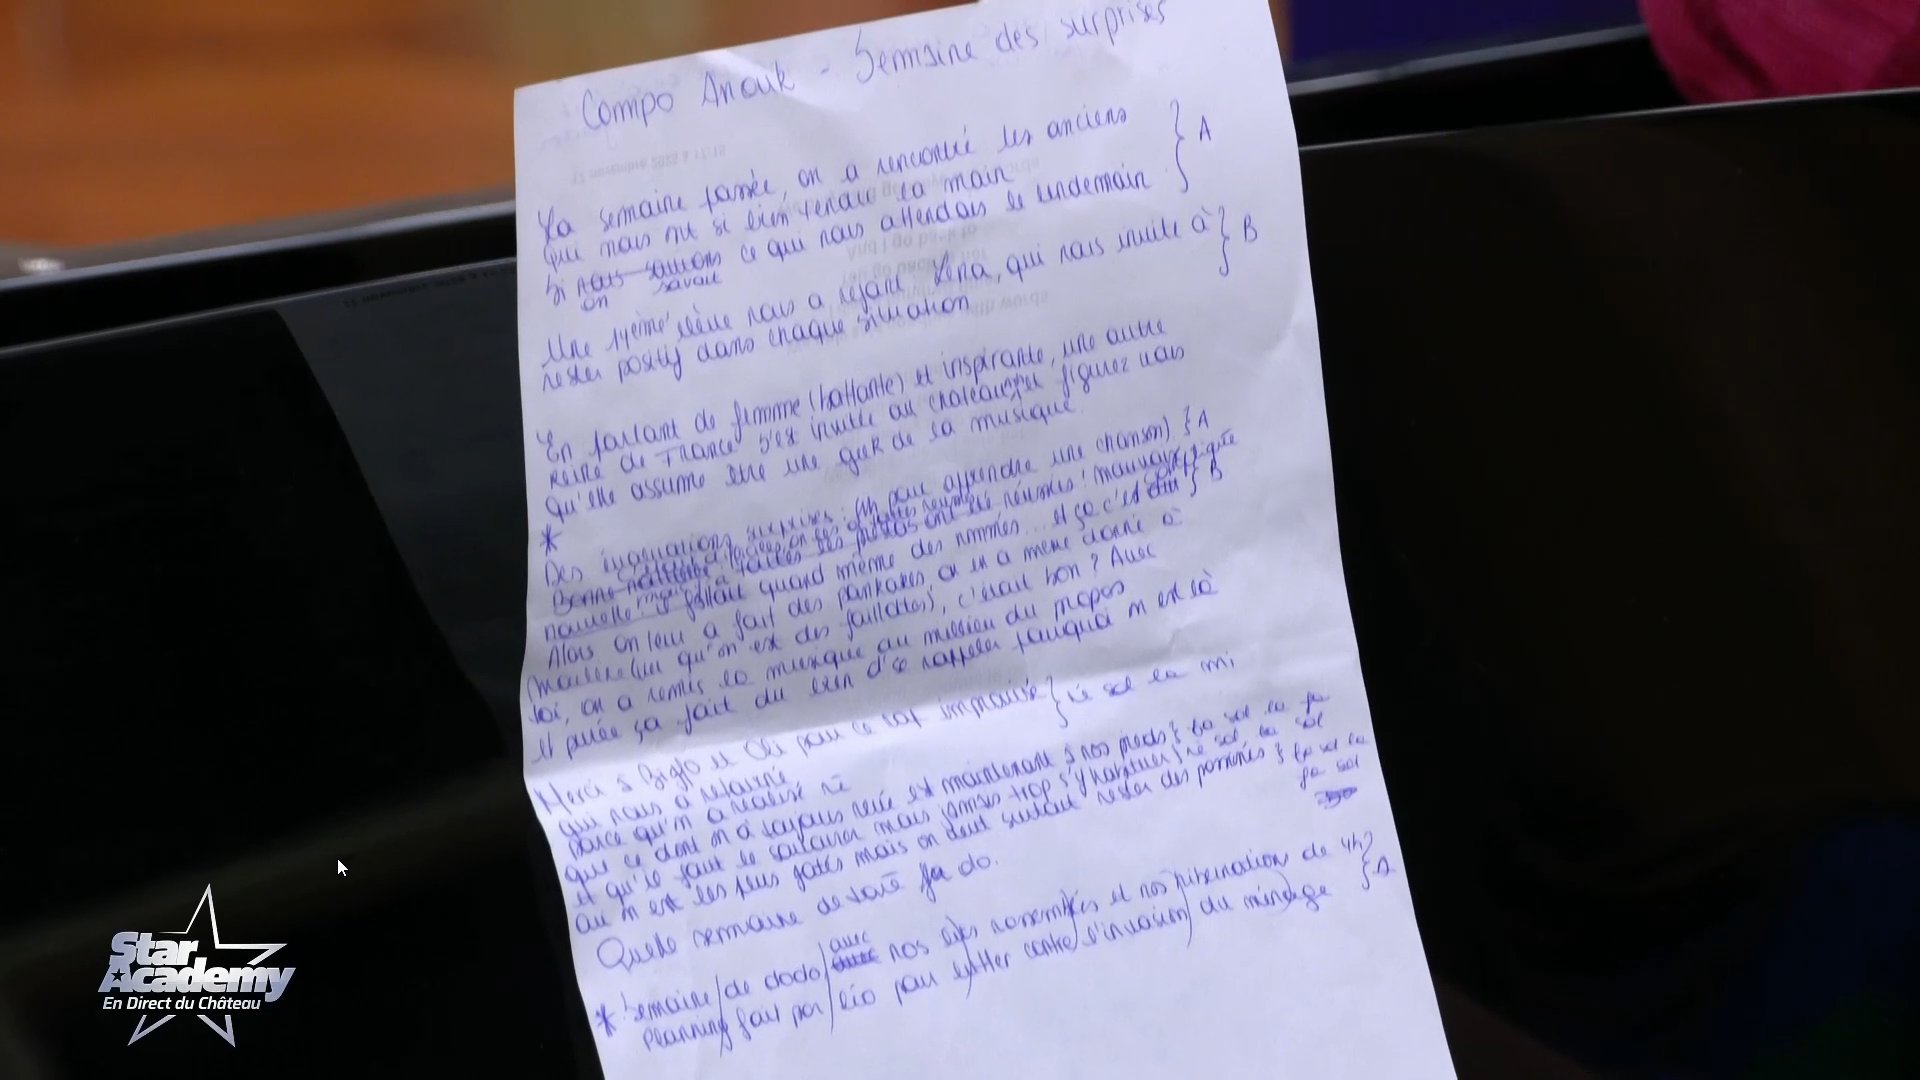 Compo Anouk - Semaine des surprises
La semaine passée, on a rencontré les anciens } A
qui nous ont si bien tendu la main
Si nous savions ce qui nous attendais le lendemain
on savait
Une 14ème élève nous a rejoint Léna, qui nous invite à } B
rester positif dans chaque situation
En parlant de femme (battante) et inspirante, une autre
reine de France s'est invitée au chateau, et figurez vous
Qu'elle assume être une geek de la musique.
*
Des évaluations surprises : (4h pour apprendre une chanson) } A
Bonne
nouvelle
Alors on leur a fait des pankartes, on en a même donné à
Marlène (vu qu'on est des faillottes), c'était bon ? Avec
toi, on a remis la musique au millieu du propos
et purée ça fait du bien d'se rappeler pourquoi on est là
Merci à Bigflo et Oli pour ce taf improvisé } ré sol la mi
qui nous a retourné
parce qu'on a réalisé ré
que ce dont on a toujours rêvé est maintenant à nos pieds } fa sol la fa
et qu'il faut le savourer mais jamais trop s'y habituer } ré sol la sol
au on est les plus gatés mais on doit surtout rester des passionnés } fa sol la
fa sol
Quelle semaine de taré fa do.
* Semaine / de dodo / avec nos lits rassemblés et nos hibernations de 4h } A
Planning fait par / Léo pour lutter contre / l'invasion / du ménage
Star
Academy
En Direct du Château